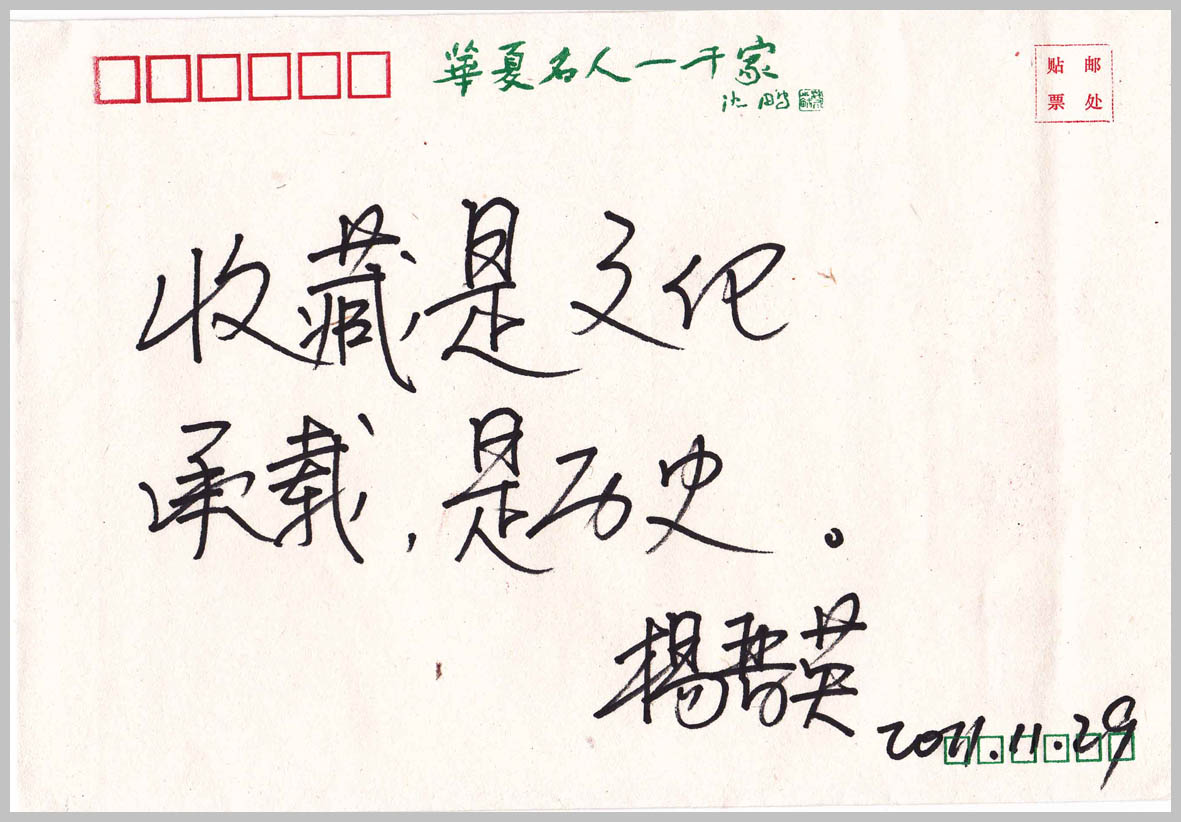 華夏名人一千家
沈鹏
贴 邮
票 处
收藏是文化
承载，是历史。
楊晋英
2011.11.29